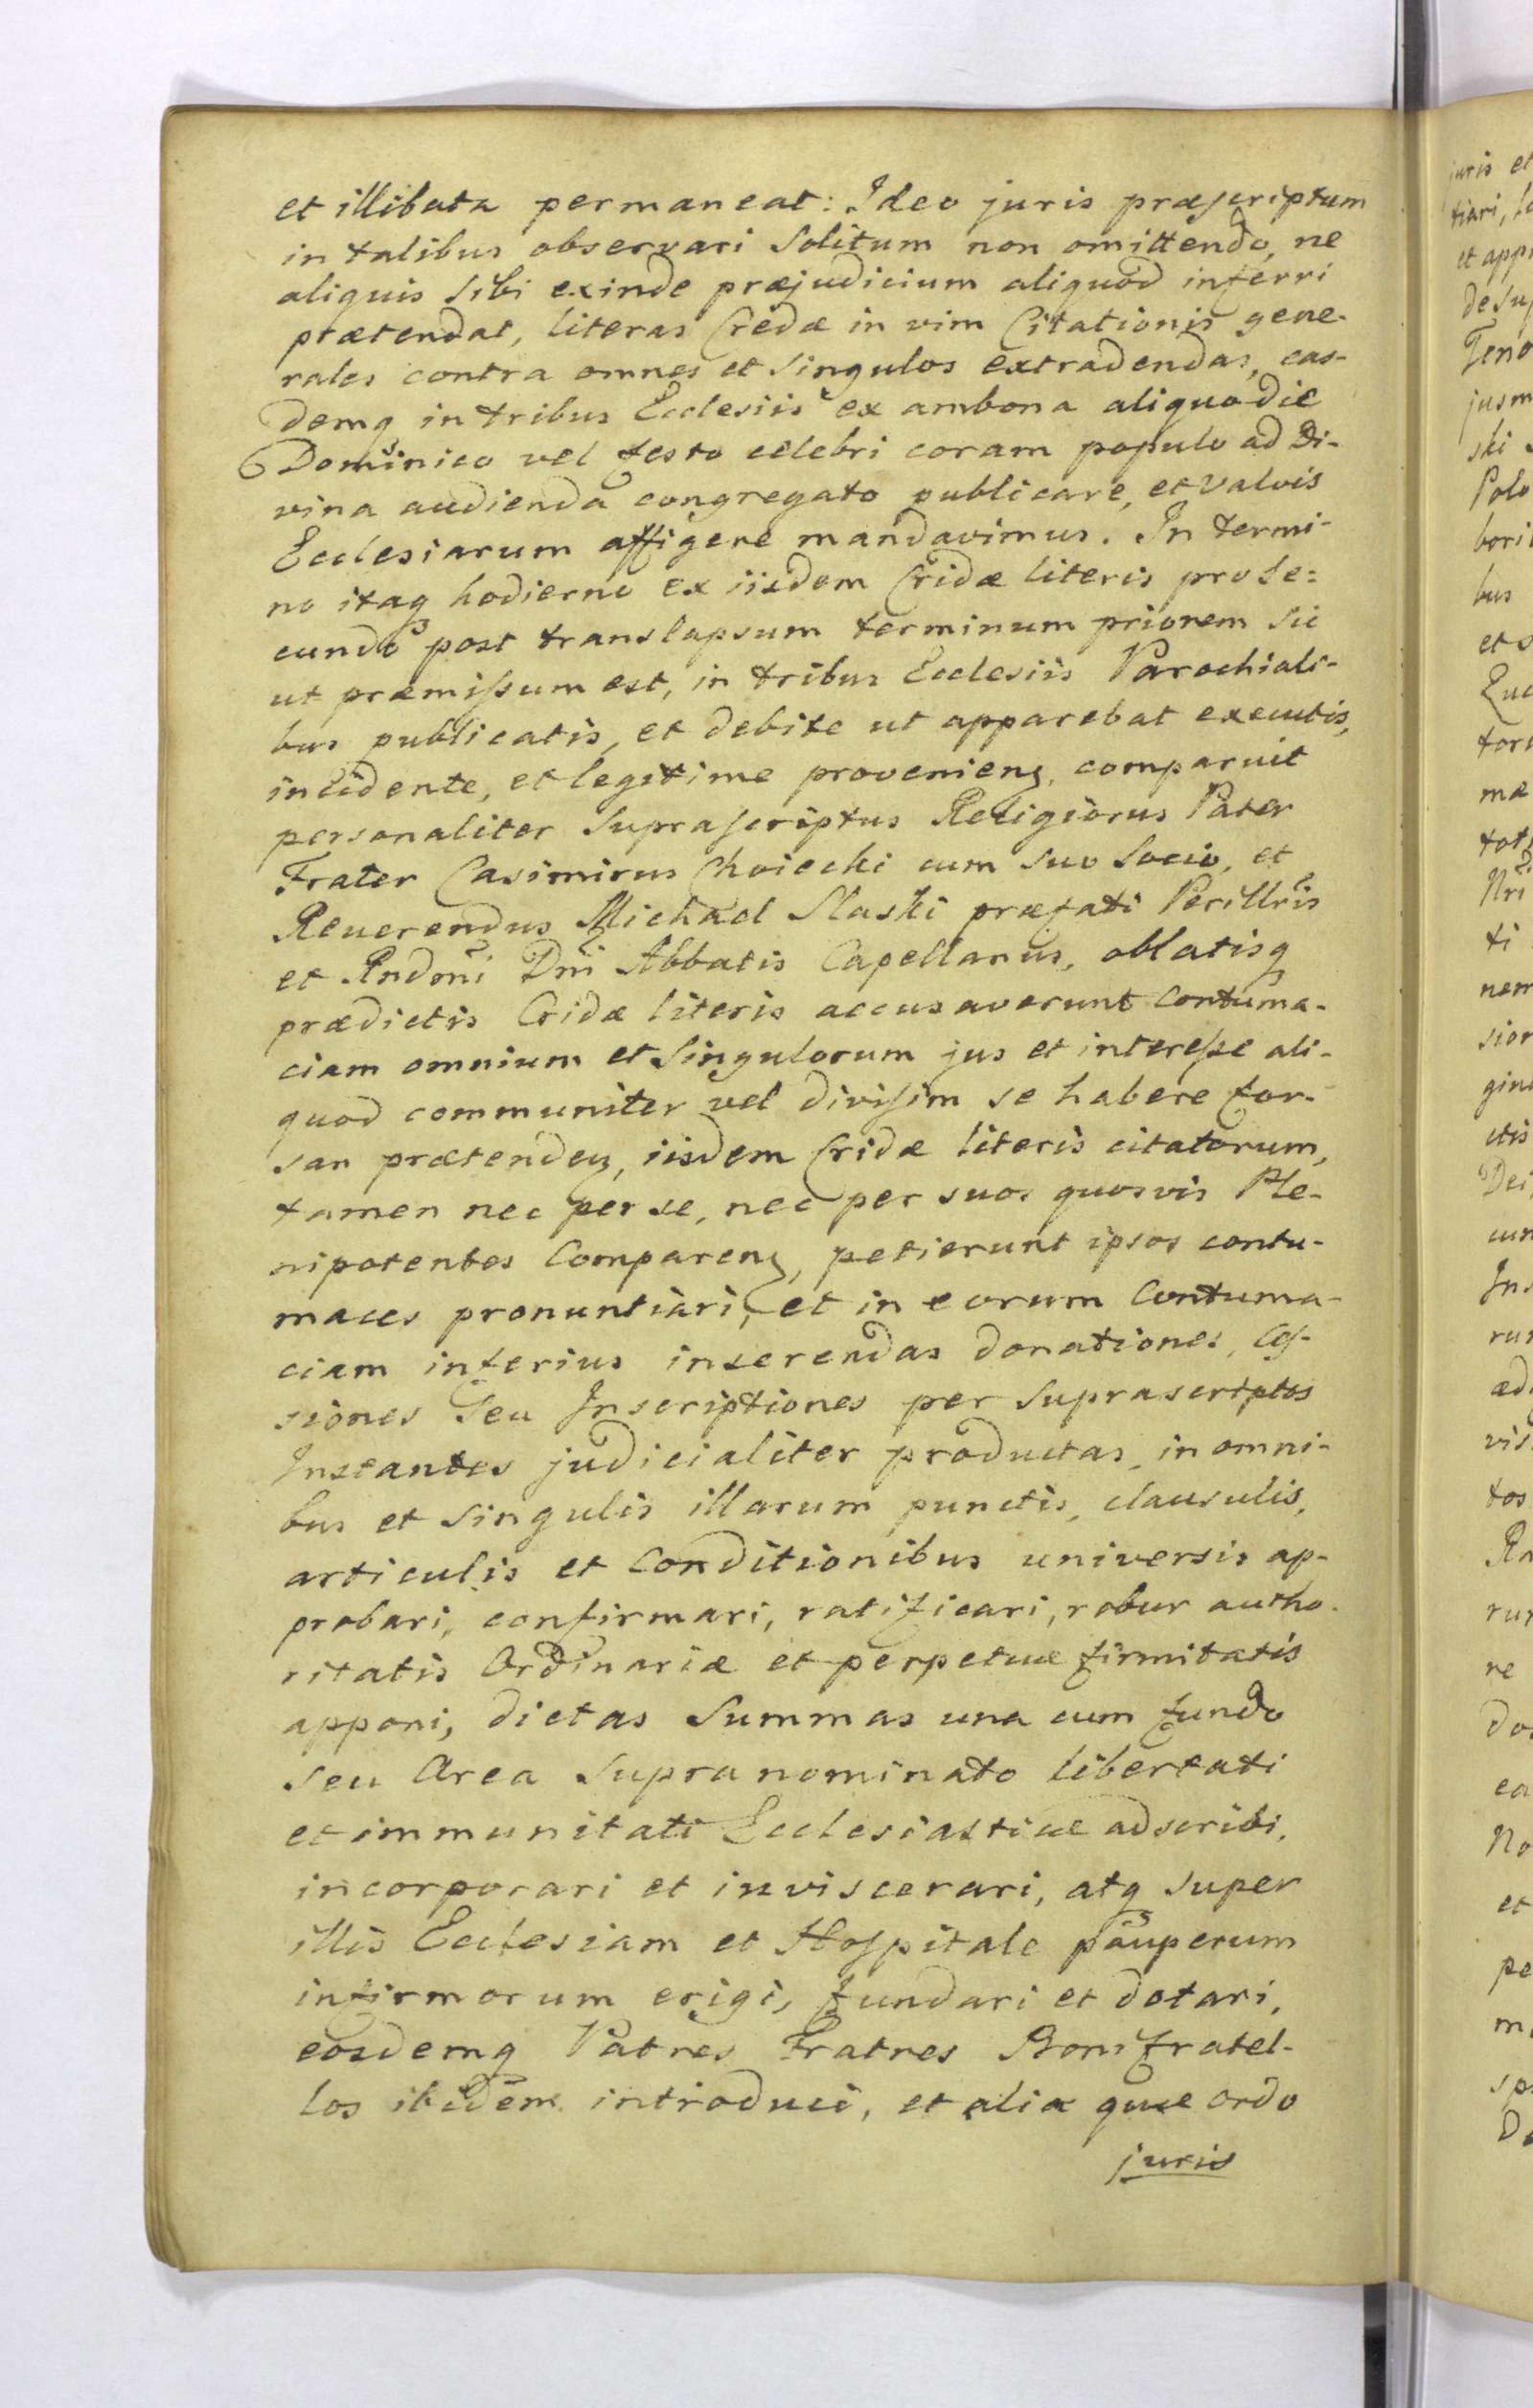 et illibata permaneat: Ideo juris præscriptum
in talibus observari solitum non omittendo, ne
aliquis sibi exinde præjudicium aliquod inferri
prætendat, literas Credæ in vim Citationis gene-
rales contra omnes et singulos extradendas, eas-
demq in tribus Ecclesiis ex ambona aliquo die
Dominico vel festo celebri coram populo ad Di-
vina audienda congregato publicare, et valvis
Ecclesiarum affigere mandavimus. In termi-
no itaq hodierno ex iisdem Cridæ literis prose=
cundo post translapsum terminum priorem sic
ut præmissum est, in tribus Ecclesiis Parochiali-
bus publicatis, et debite ut apparebat executis,
incidente, et legitime provenieng, comparuit
personaliter suprascriptus Religiosus Pater
Frater Casimirus Choiecki cum suo socio, et
Reverendus Michael Slaski præfati Perillris
et Rndmi Dni Abbatis Capellanus, oblatisq
prædictis Cridæ literis accusaverunt contuma-
ciam omnium et singulorum jus et interesse ali-
quod communiter vel divisim se habere for-
san prætendeg, iisdem Cridæ literis citatorum,
tamen nec per se, nec per suos quosvis Ple-
nipotentes Compareng, petierunt ipsos contu-
maces pronuntiari, et in eorum Contuma-
ciam inferius inserendas donationes, Ces-
siones seu Inscriptiones per suprascriptos
Instantes judicialiter productas, in omni-
bus et singulis illarum punctis, clausulis,
articulis et Conditionibus universis ap-
probari, confirmari, ratificari, robur autho-
ritatis Ordinariæ et perpetuæ firmitatis
apponi, dictas summas una cum fundo
seu Area supra nominato libertati
et immunitati Ecclesiasticæ adscribi,
incorporari et inviscerari, atq super
illis Ecclesiam et Hospitale pauperum
infirmorum erigi, fundari et dotari,
eosdemq Patres Fratres Bonifratel-
los ibidem introduci, et alia quæ ordo
juris